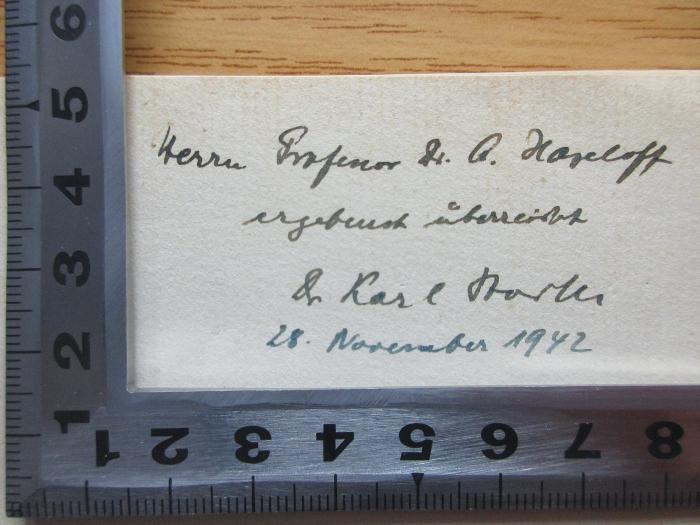 Herrn Professor Dr. A. Haseloff
ergebenst überreicht
Dr Karl
28. November 1942
6
5
4
3
2
1
1 2 3 4 5 6 7 8